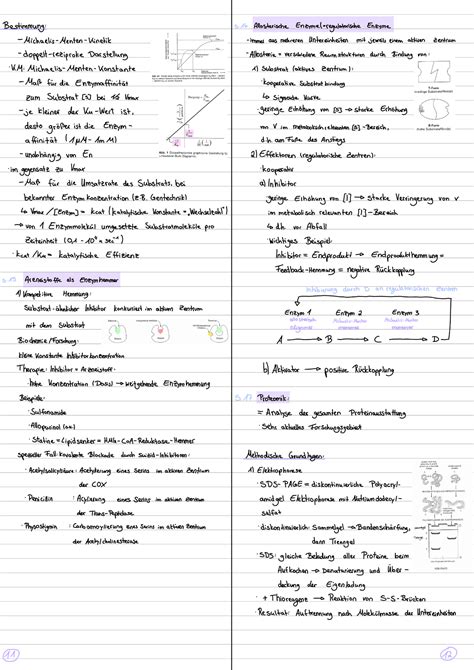 Bestimmung:
- Michaelis-Menten-Kinetik
- doppelt-reziproke Darstellung
· KM: Michaelis-Menten-Konstante
- Maß für die Enzymaffinität
zum Substrat [S] bei ½ Vmax
- je kleiner der KM-Wert ist,
desto größer ist die Enzym-
affinität (1μM - 1mM)
- unabhängig von En
im gegensatz zu Vmax
- Maß für die Umsatzrate des Substrats bei
bekannter Enzymkonzentration (z.B. Gentechnik)
↳ Vmax / [Enzym] = kcat (katalytische Konstante = „Wechselzahl")
→ von 1 Enzymmolekül umgesetzte Substratmoleküle pro
Zeiteinheit
· kcat / KM = katalytische Effizienz
S. 15 Arzneistoffe als Enzymhemmer
1) Kompetitive Hemmung:
Substrat-ähnlicher Inhibitor konkurriert im aktiven Zentrum
mit dem Substrat
Biochemie/Forschung:
kleine Konstante Inhibitorkonzentration
Therapie: Inhibitor = Arzneistoff:
· hohe Konzentration (Dosis) → weitgehende Enzymhemmung
Beispiele:
· Sulfonamide
· Allopurinol
· Statine = Lipidsenker = HMG-CoA-Reduktase-Hemmer
spezieller Fall: kovalente Blockade durch Suizid-Inhibitoren:
· Acetylsalicylsäure: Acetylierung eines Serins im aktiven Zentrum
der COX
· Penicillin : Acylierung eines Serins im aktiven Zentrum
der Trans-Peptidase
· Physostigmin : Carbamoylierung eines Serins im aktiven Zentrum
der Acetylcholinesterase
11
S. 16 Allosterische Enzyme = regulatorische Enzyme
- Immer aus mehreren Untereinheiten mit jeweils einem aktiven Zentrum
- Allosterie = verschiedene Raumstrukturen durch Bindung von:
1) Substrat (aktives Zentrum):
kooperative Substratbindung
↳ Sigmoide Kurve
geringe Erhöhung von [S] → starke Erhöhung
von V im metabolisch relevanten [S]-Bereich,
d.h. am Fuße des Anstiegs
2) Effektoren (regulatorische Zentren):
· kooperativ
a) Inhibitor
geringe Erhöhung von [I] → starke Verringerung von V
im metabolisch relevanten [I]-Bereich
↳ d.h. vor Abfall
wichtiges Beispiel:
Inhibitor = Endprodukt → Endprodukthemmung =
Feedback-Hemmung = negative Rückkopplung
Inhibierung durch D an regulatorischem Zentrum
Enzym 1 Enzym 2 Enzym 3
A → B → C → D
b) Aktivator → positive Rückkopplung
S. 17 Proteomik:
= Analyse der gesamten Proteinausstattung
· Sehr aktuelles Forschungsgebiet
Methodische Grundlagen:
1) Elektrophorese
· SDS-PAGE = diskontinuierliche Polyacryl-
amidgel Elektrophorese mit Natriumdodecyl-
sulfat
· diskontinuierlich: Sammelgel → Bandenschärfung,
dann Trenngel
· SDS: gleiche Beladung aller Proteine beim
Aufkochen → Denaturierung und Über-
deckung der Eigenladung
· + Thioreagenz → Reaktion von S-S-Brücken
· Resultat: Auftrennung nach Molekülmasse der Untereinheiten
12